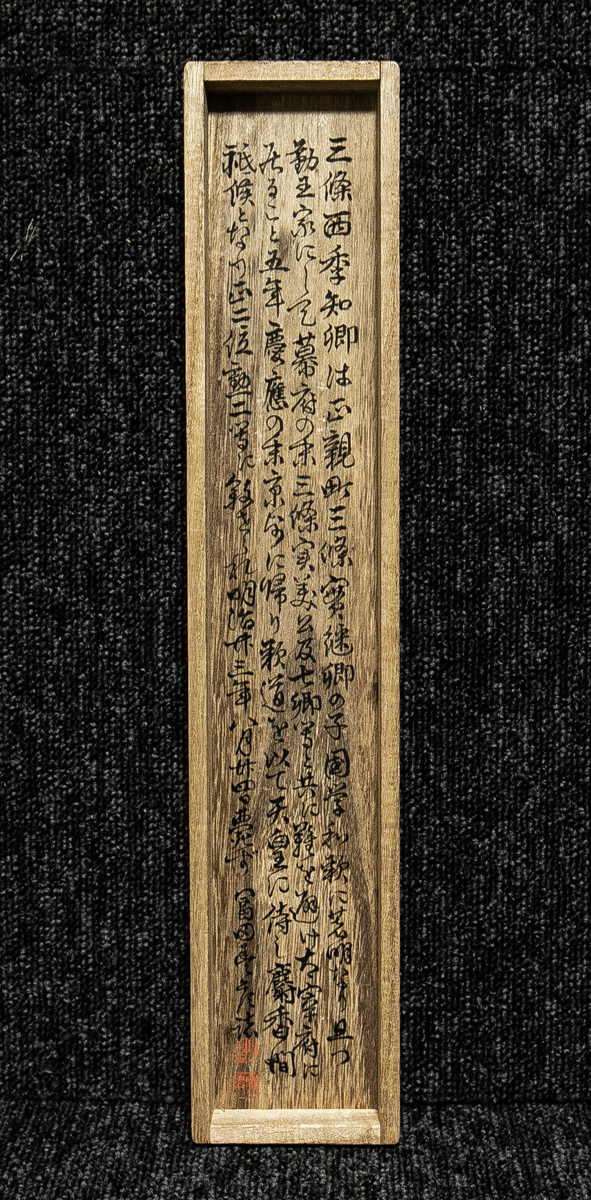 三條西季知卿は正親町三條實継卿の子国学和歌に著明なり且つ
勤王家にして幕府の末三條実美公及七卿等と共に難を避け太宰府に
居ること五年慶應の末京師に帰り歌道を以て天皇に侍し麝香間
祗候となり正二位勲二等に叙せられ明治廿三年八月廿四日薨ず 冨田